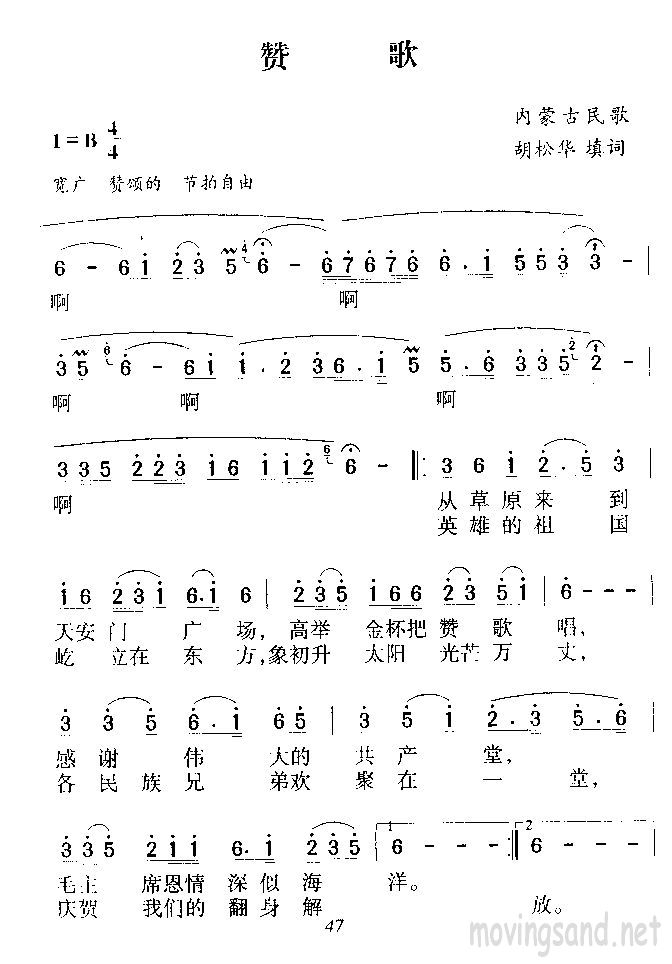 赞 歌
内蒙古民歌
1=B 4/4
胡松华 填词
宽广 赞颂的 节拍自由
6 - 6 1 2 3 5 4 6 - 6 7 6 7 6 6 . 1 5 5 3 3 - |
啊 啊
3 5 6 6 - 6 1 1 1 . 2 3 6 . 1 5 5 . 6 3 3 5 2 2 - |
啊 啊 啊
3 3 5 2 2 3 1 6 1 1 2 6 6 - ‖: 3 6 1 2 . 5 3
啊 从草原来 到
英雄的祖 国
1 6 2 3 1 6 . 1 6 | 2 3 5 1 6 6 2 3 5 1 | 6 - - -
天安门 广 场, 高举 金杯把 赞 歌 唱,
屹 立在 东 方,象初升 太阳 光芒 万 丈,
3 3 5 6 . 1 6 5 | 3 3 5 1 2 . 3 5 . 6
感谢 伟 大的 共产 堂,
各民族兄 弟欢 聚在 一 堂,
3 3 5 2 1 1 6 . 1 2 3 5 | 1 6 - - - :‖ 2 6 - - -
毛主 席恩情 深似 海 洋。
庆贺 我们的 翻身 解 放。
47
movingsand.net